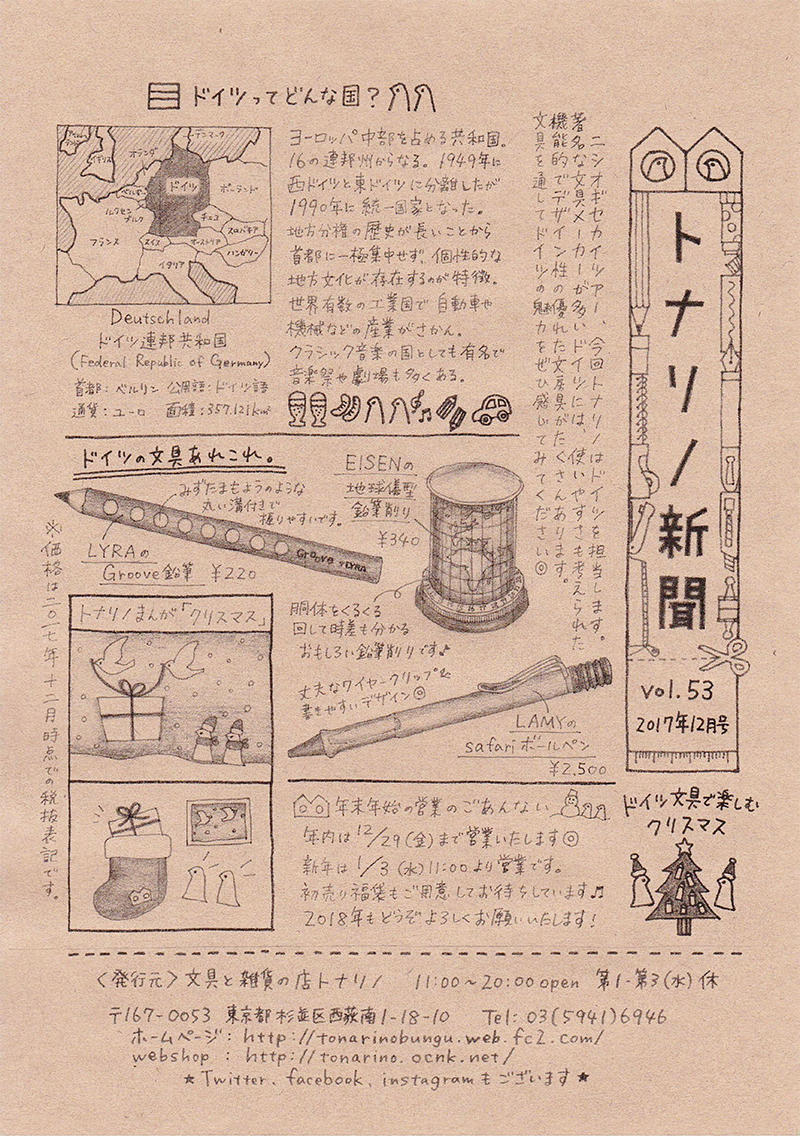 トナリノ新聞
vol.53
2017年12月号
ドイツ文具で楽しむ
クリスマス
ニシオギセカイツアー、今回トナリノはドイツを担当します。
著名な文具メーカーが多いドイツには、使いやすさも考えられた
機能的でデザイン性の優れた文房具がたくさんあります。
文具を通してドイツの魅力をぜひ感じてみてください◎
ドイツってどんな国?
デンマーク
イギリス
オランダ
ドイツ
ポーランド
ベルギー
ルクセンブルク
チェコ
スロバキア
フランス
スイス
オーストリア
ハンガリー
イタリア
Deutschland
ドイツ連邦共和国
(Federal Republic of Germany)
首都:ベルリン 公用語:ドイツ語
通貨:ユーロ 面積:357.121k㎡
ヨーロッパ中部を占める共和国。
16の連邦州からなる。1949年に
西ドイツと東ドイツに分離したが
1990年に統一国家となった。
地方分権の歴史が長いことから
首都に一極集中せず、個性的な
地方文化が存在するのが特徴。
世界有数の工業国で自動車や
機械などの産業がさかん。
クラシック音楽の国としても有名で
音楽祭や劇場も多くある。
ドイツの文具あれこれ。
みずたまもようのような
丸い溝付きで
握りやすいです。
Groove LYRA
LYRAの
Groove鉛筆 ¥220
EISENの
地球儀型
鉛筆削り
¥340
胴体をくるくる
回して時差も分かる
おもしろい鉛筆削りです♪
丈夫なワイヤークリップ&
書きやすいデザイン◎
LAMYの
safariボールペン
¥2,500
※価格は二〇一七年十二月時点での税抜表記です。
トナリノまんが「クリスマス」
年末年始の営業のごあんない
年内は12/29(金)まで営業いたします◎
新年は1/3(水)11:00より営業です。
初売り福袋もご用意してお待ちしています♬
2018年もどうぞよろしくお願いいたします!
〈発行元〉文具と雑貨の店トナリノ 11:00~20:00 open 第1・第3(水)休
〒167-0053 東京都杉並区西荻南1-18-10 Tel: 03(5941)6946
ホームページ: http://tonarinobungu.web.fc2.com/
webshop : http://tonarino.ocnk.net/
★Twitter、facebook、instagramもございます★